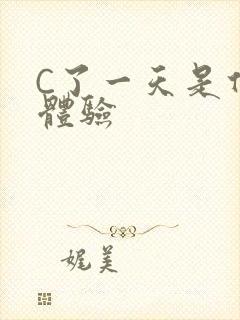 C了一天是
體驗
娓美